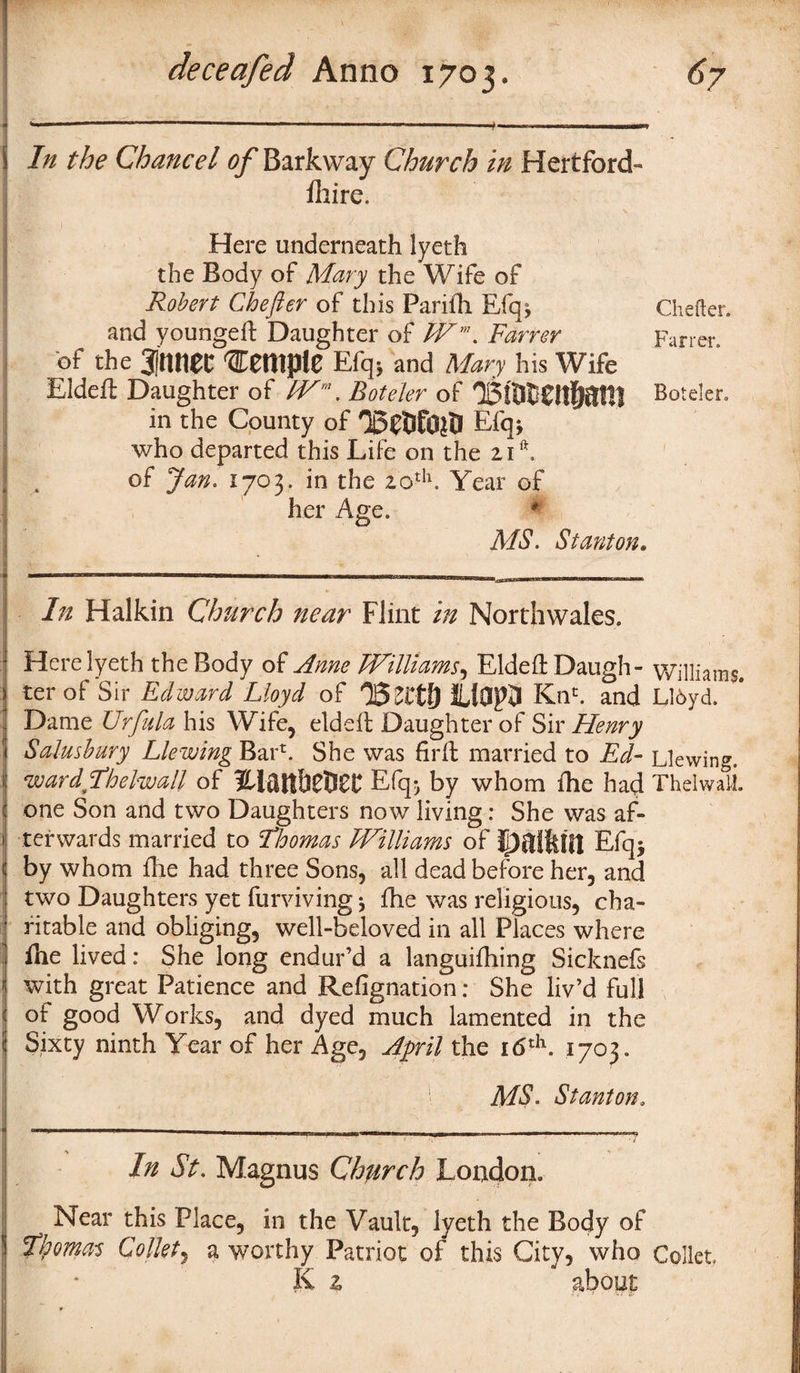 deceaſed Anno 1703. 67
In the Chancel of Barkway Church in Hertford-
ſhire.
Here underneath lyeth
the Body of Mary the Wife of
Robert Cheſter of this Pariſh Eſq; Cheſter.
and youngeſt Daughter of Wᵐ. Farrer Farrer.
of the Inner Temple Eſq; and Mary his Wife
Eldeſt Daughter of Wᵐ. Boteler of Biddenham Boteler.
in the County of Bedford Eſq;
who departed this Life on the 21ſt.
of Jan. 1703. in the 20ᵗʰ. Year of
her Age.
MS. Stanton.
In Halkin Church near Flint in Northwales.
Here lyeth the Body of Anne Williams, Eldeſt Daugh- Williams.
ter of Sir Edward Lloyd of Berth Lloyd Knᵗ. and Lloyd.
Dame Urſula his Wife, eldeſt Daughter of Sir Henry
Salusbury Llewing Barᵗ. She was firſt married to Ed- Llewing.
ward Thelwall of Llanbeder Eſq; by whom ſhe had Thelwall.
one Son and two Daughters now living: She was af-
terwards married to Thomas Williams of Halkin Eſq;
by whom ſhe had three Sons, all dead before her, and
two Daughters yet ſurviving; ſhe was religious, cha-
ritable and obliging, well-beloved in all Places where
ſhe lived: She long endur’d a languiſhing Sickneſs
with great Patience and Reſignation: She liv’d full
of good Works, and dyed much lamented in the
Sixty ninth Year of her Age, April the 16ᵗʰ. 1703.
MS. Stanton.
In St. Magnus Church London.
Near this Place, in the Vault, lyeth the Body of
Thomas Collet, a worthy Patriot of this City, who Collet.
K 2 about